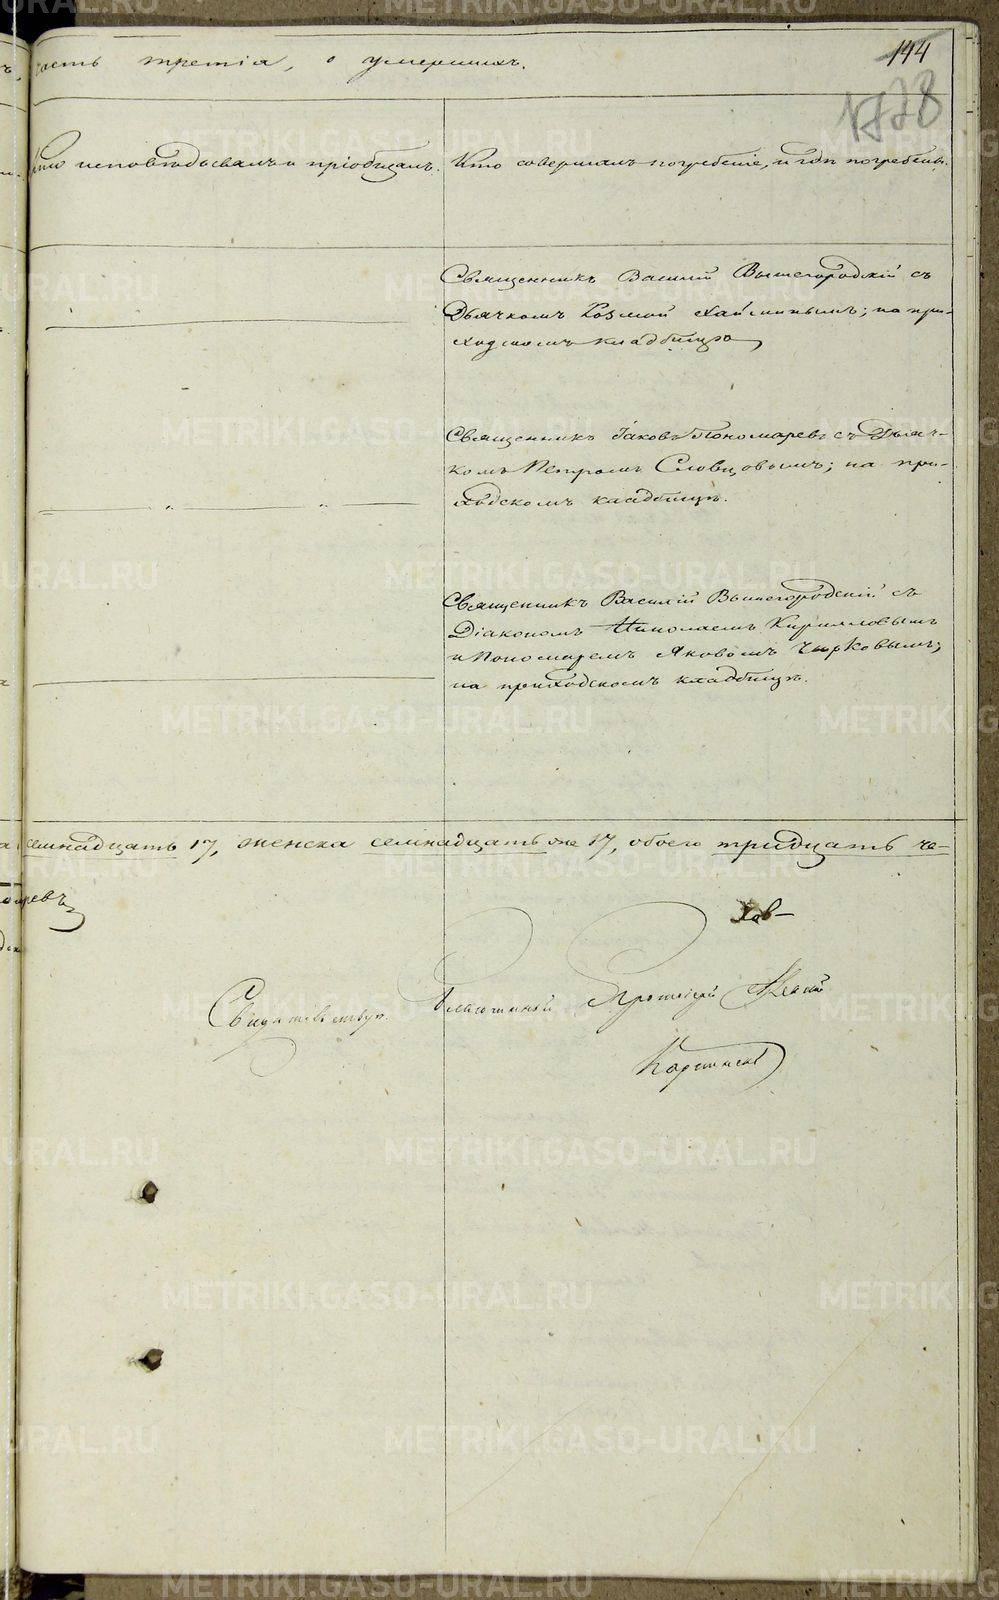 144
часть третія, о умершихъ.
1778
Кто исповѣдывалъ и пріобщалъ. Кто совершалъ погребеніе, и гдѣ погребены.
Священникъ Василій Вышегородскій съ
Дьячкомъ Козмой Хайминымъ; на при-
ходскомъ кладбищѣ
Священникъ Іаковъ Пономаревъ съ Дьяч-
комъ Петромъ Словцовымъ; на при-
ходскомъ кладбищѣ.
Священникъ Василій Вышегородскій съ
Діакономъ Николаемъ Кирилловымъ
и Пономаремъ Яковомъ Чирковымъ;
на приходскомъ кладбищѣ.
семнадцать 17, женска семнадцать же 17, обоего тридцать че-
ревъ
Свидѣтельствую. Благочинный Протоіерей
METRIKI.GASO-URAL.RU